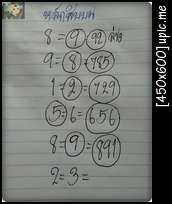 8 = 9 92 ล่าง
9 = 8 785
1 = 2 729
5 = 6 = 656
8 = 9 = 891
2 = 3 =
[450x600] upic.me